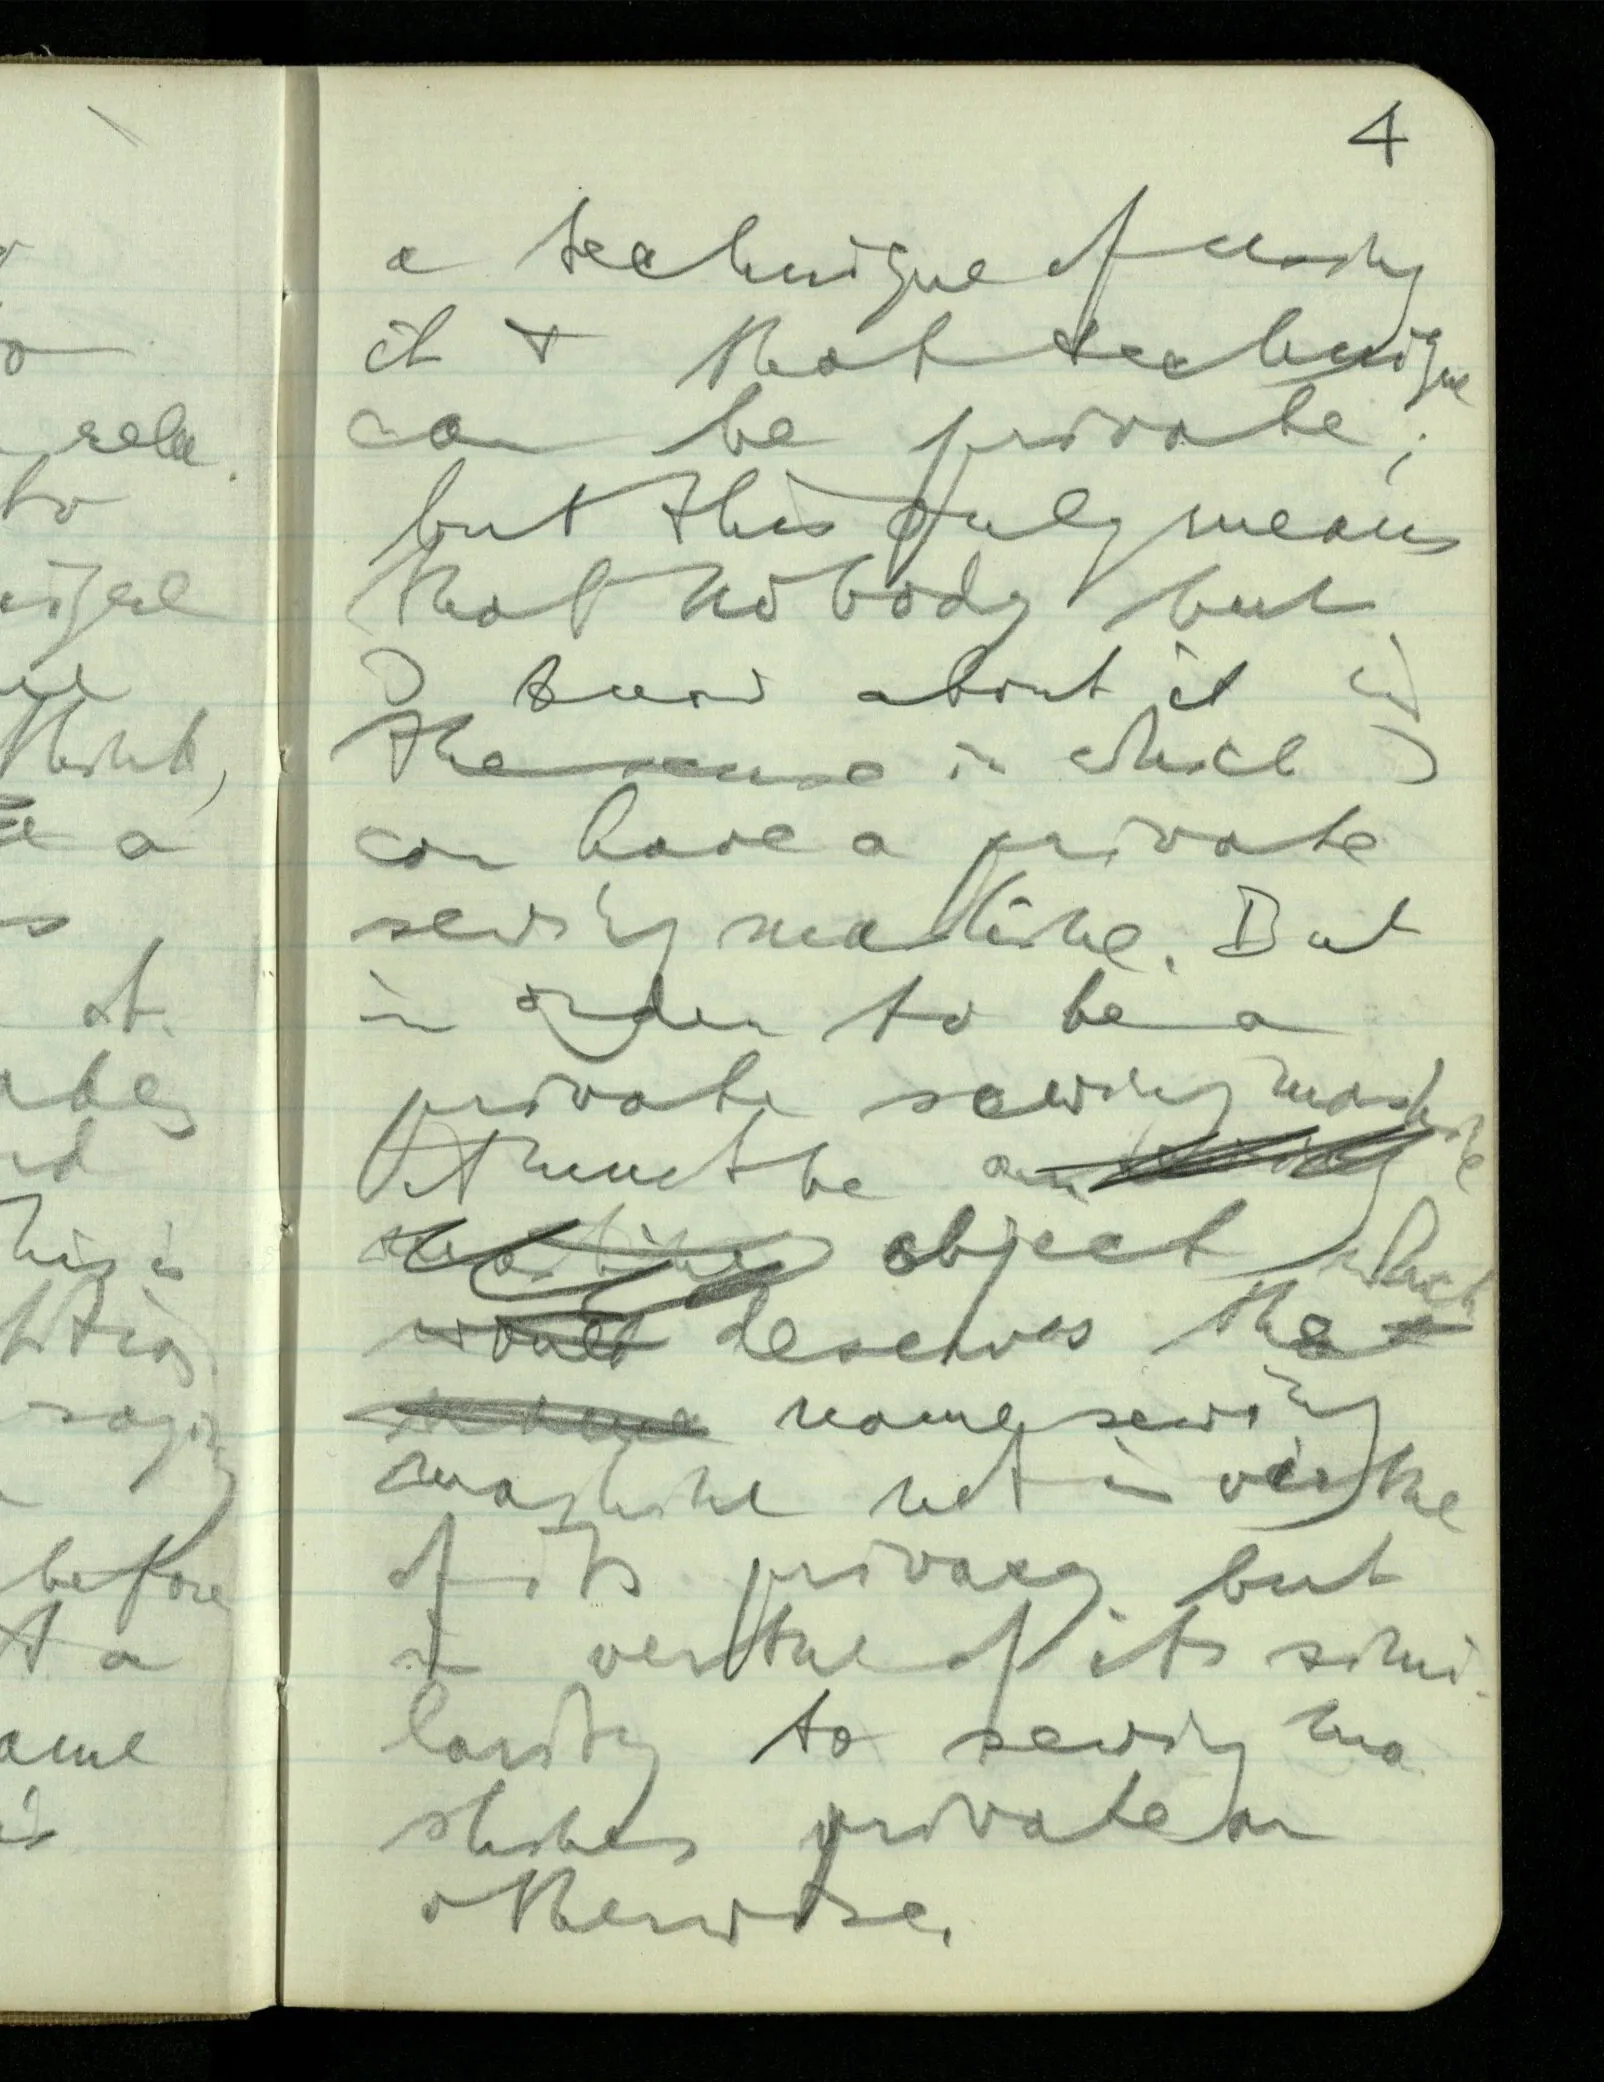 4
a technique of using
it & that technique
can be private;
but this only means
that nobody but
I know about it in
the sense in which I
can have a private
sewing machine. But
in order to be a
private sewing machine
it must be an
object which
would deserves the
name sewing
machine not in virtue
of its privacy but
in virtue of its simi-
larity to sewing ma
chines private or
otherwise.
rela.
to
think,
a
at
before
a